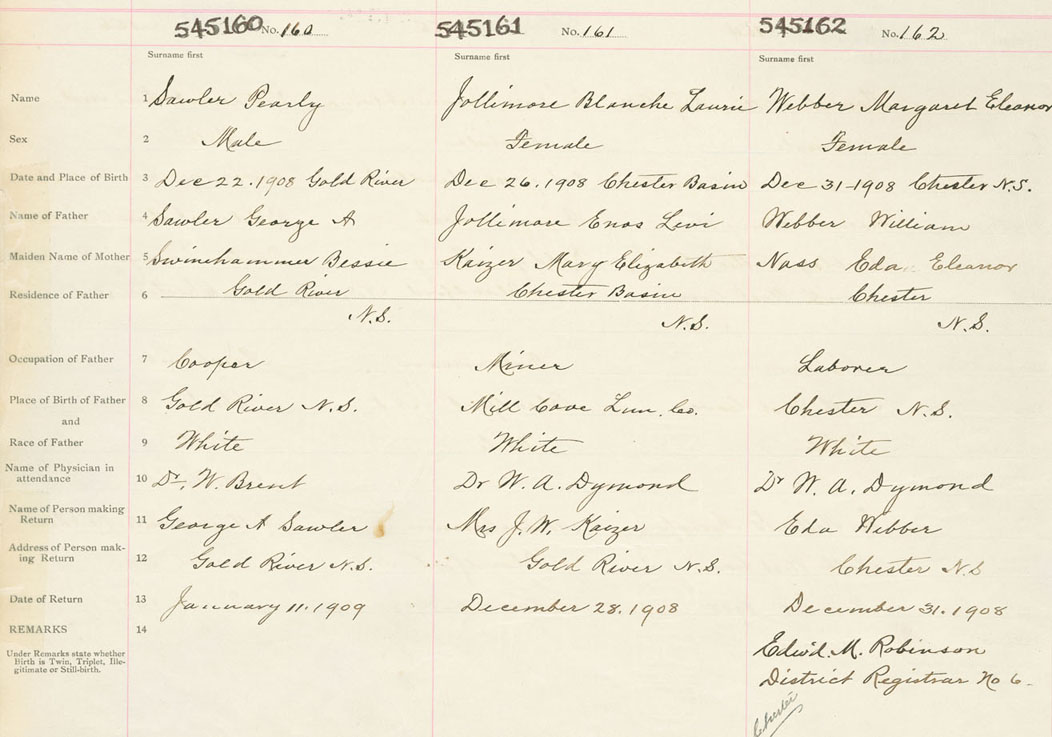 545160 No. 160 545161 No. 161 545162 No. 162
Surname first Surname first Surname first
Name 1 Sawler Pearly Jollimore Blanche Laurie Webber Margaret Eleanor
Sex 2 Male Female Female
Date and Place of Birth 3 Dec 22. 1908 Gold River Dec 26. 1908 Chester Basin Dec 31-1908 Chester N.S.
Name of Father 4 Sawler George A Jollimore Enos Levi Webber William
Maiden Name of Mother 5 Swinehammer Bessie Kaizer Mary Elizabeth Nass Eda Eleanor
Residence of Father 6 Gold River Chester Basin Chester
N.S. N.S. N.S.
Occupation of Father 7 Cooper Miner Laborer
Place of Birth of Father 8 Gold River N.S. Mill Cove Lun. Co. Chester N.S.
and
Race of Father 9 White White White
Name of Physician in
attendance 10 Dr. W. Brent Dr W. A. Dymond Dr W. A. Dymond
Name of Person making
Return 11 George A Sawler Mrs J. W. Kaizer Eda Webber
Address of Person mak-
ing Return 12 Gold River N.S. Gold River N.S. Chester N.S
Date of Return 13 January 11. 1909 December 28. 1908 December 31. 1908
REMARKS 14
Under Remarks state whether
Birth is Twin, Triplet, Ille-
gitimate or Still-birth.
Edwd. M. Robinson
District Registrar No 6.
Chester